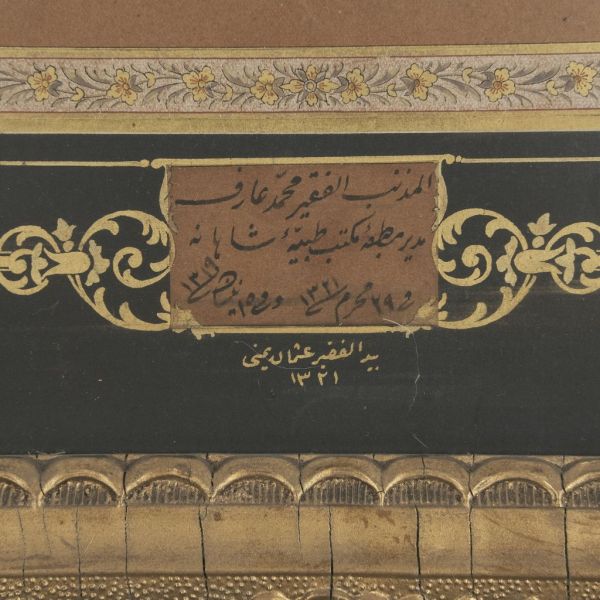 المذنب الفقیر محمّد عارف
مدیر مطبعهٔ مکتب طبیهٔ شاهانه
فی ٢٩ محرم ١٣٢١ و فی ١٥ نیسان ١٣١٩
بید الفقیر عثمان یمنی
١٣٢١